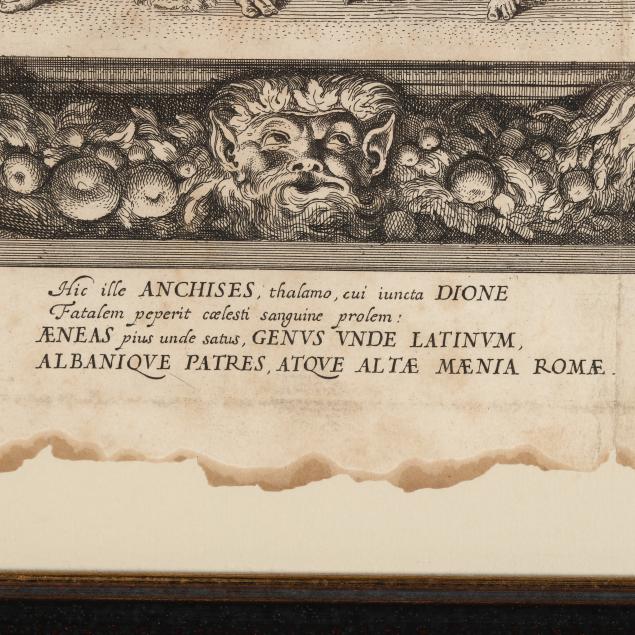 Hic ille ANCHISES, thalamo, cui iuncta DIONE
Fatalem peperit cœlesti sanguine prolem:
ÆNEAS pius unde satus, GENVS VNDE LATINVM,
ALBANIQVE PATRES, ATQVE ALTÆ MÆNIA ROMÆ.